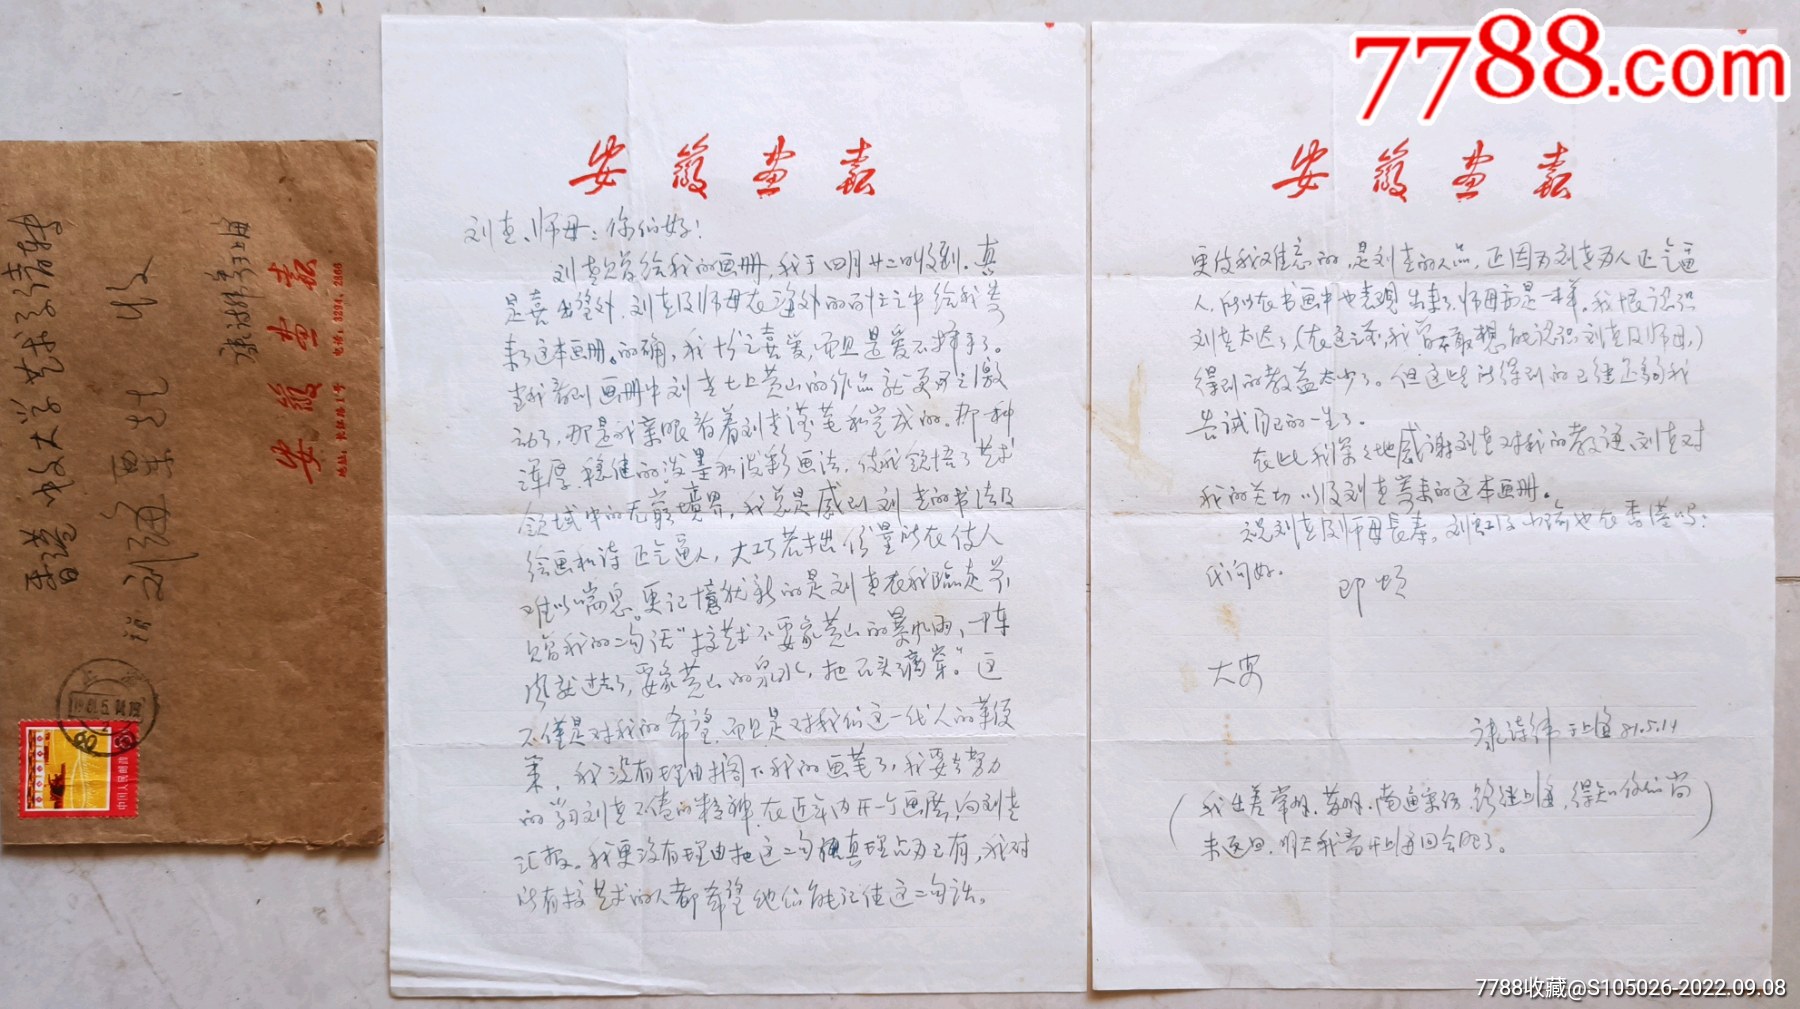 香港 中文大学艺术系请转
刘海粟老 收
康诗纬寄于上海
安徽画报
地址：长江路1号 电话：3294，2866
中国人民邮政
安徽画报
刘老、师母：你们好！
刘老赠给我的画册，我于四月廿二日收到。真
是喜出望外，刘老及师母在海外的百忙之中给我寄
来了这本画册。的确，我十分喜爱，而且是爱不择手了。
当我看到画册中刘老七上黄山的作品就更为之激
动了，那是我亲眼看着刘老落笔和完成的。那一种
浑厚、稳健的泼墨和泼彩画法，使我领悟了艺术
领域中的无穷境界，我总是感到刘老的书法及
绘画和诗正气逼人，大巧若拙份量所在使人
难以喘息。更记忆犹新的是刘老在我临走前
赠我的二句话“搞艺术不要象黄山的暴风雨，一阵
风就过去了，要象黄山的泉水，把石头滴穿。”这
不仅是对我的希望而且是对我们这一代人的鞭
策，我没有理由搁下我的画笔了，我要去努力
的学习刘老不倦的精神，在近年内开一个画展，向刘老
汇报。我更没有理由把这二句真理占为己有，我对
所有搞艺术的人都希望他们能记住这二句话。
安徽画报
更使我难忘的，是刘老的人品，正因为刘老为人正气逼
人，所以在书画中也表现出来了，师母亦是一样。我恨认识
刘老太迟了，（在这之前，我曾不敢想能认识刘老及师母，）
得到的教益太少了。但这些所得到的已经足够我
尝试自己的一生了。
在此我深深地感谢刘老对我的教诲，刘老对
我的关切以及刘老寄来的这本画册。
祝刘老及师母长寿。刘虹了小海也在香港吗？
代问好。
即颂
大安
康诗纬于上海 81.5.14
（我出差常州、苏州、南通采访，路经上海，得知你们尚
未返回，明天我离开上海回合肥了。）
7788.com
7788收藏@S105026-2022.09.08